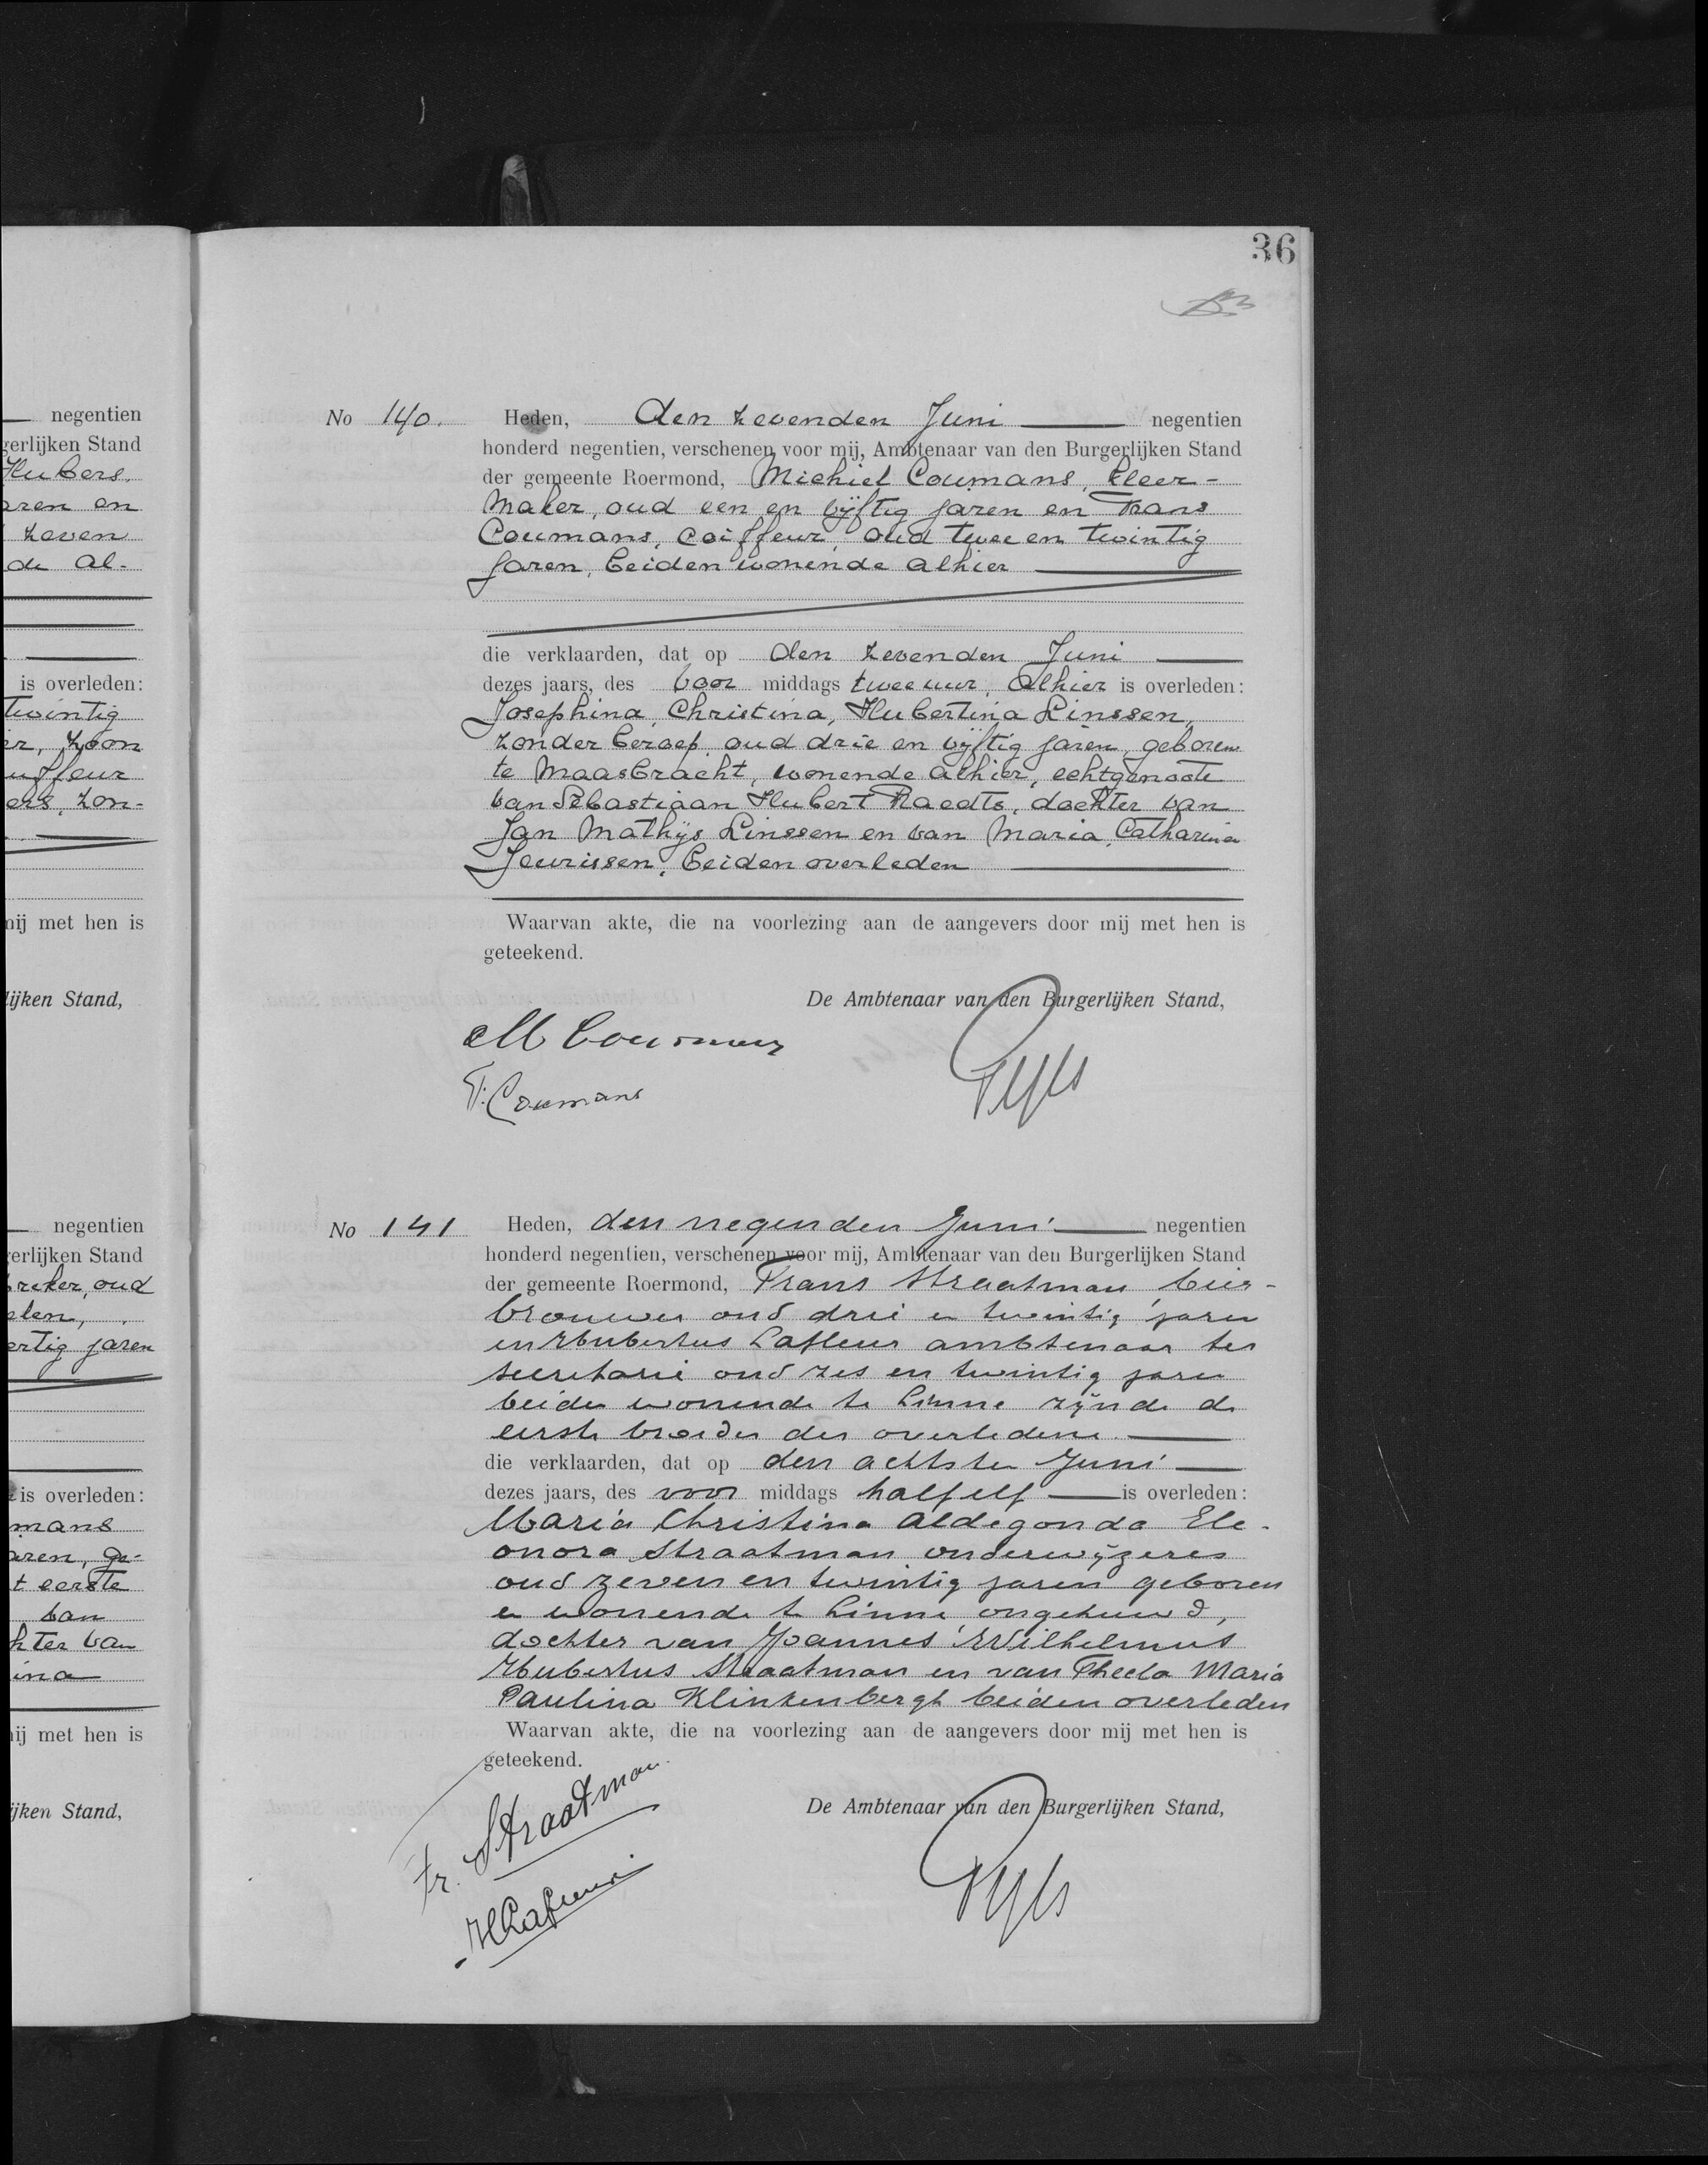 36
negentien
gerlijken Stand
Hubers,
aren en
zeven
de al-
is overleden:
twintig
er, zoon
uffeur
ers, zon-
mij met hen is
lijken Stand,
negentien
erlijken Stand
breker, oud
elen,
ertig jaren
is overleden:
mans
aren, ge-
t eerste
van
hter van
ina
ij met hen is
ijken Stand,
No 140. Heden, den zevenden Juni negentien
honderd negentien, verschenen voor mij, Ambtenaar van den Burgerlijken Stand
der gemeente Roermond, Michiel Coumans, kleer-
maker, oud een en vijftig jaren en Frans
Coumans, coiffeur, oud twee en twintig
jaren, beiden wonende alhier
die verklaarden, dat op den zevenden Juni
dezes jaars, des voor middags twee uur, alhier is overleden:
Josephina, Christina, Hubertina Linssen,
zonder beroep, oud drie en vijftig jaren, geboren
te Maasbracht, wonende alhier, echtgenoote
van Sebastiaan Hubert Raedts, dochter van
Jan Mathijs Linssen en van Maria, Catharina
Jeurissen, beiden overleden
Waarvan akte, die na voorlezing aan de aangevers door mij met hen is
geteekend.
De Ambtenaar van den Burgerlijken Stand,
M Coumans
F. Coumans
No 141 Heden, den negenden Juni negentien
honderd negentien, verschenen voor mij, Ambtenaar van den Burgerlijken Stand
der gemeente Roermond, Frans Straatman, bier-
brouwer oud drie en twintig jaren
en Hubertus Lafleur ambtenaar ter
secretarie oud zes en twintig jaren
beiden wonende te Linne zijnde de
eerste broeder der overledene
die verklaarden, dat op den achtsten Juni
dezes jaars, des voor middags half elf is overleden:
Maria Christina Aldegonda Ele-
onora Straatman onderwijzeres
oud zeven en twintig jaren geboren
en wonende te Linne ongehuwd,
dochter van Joannes Wilhelmus
Hubertus Straatman en van Thecla Maria
Paulina Klinkenbergh beiden overleden
Waarvan akte, die na voorlezing aan de aangevers door mij met hen is
geteekend.
De Ambtenaar van den Burgerlijken Stand,
Fr. Straatman
HLafleur